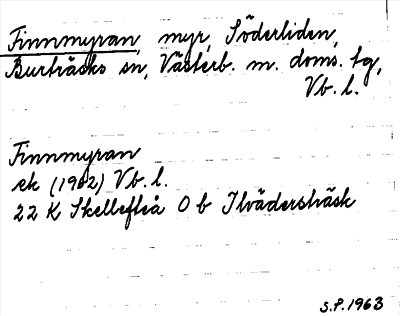 Finnmyran, myr, Söderliden,
Burträsks sn, Västerb. m. doms. tg,
Vb. l.
Finnmyran
ek (1962) Vb. l.
22 K Skellefteå O b Ilvädersträsk
S.P. 1963